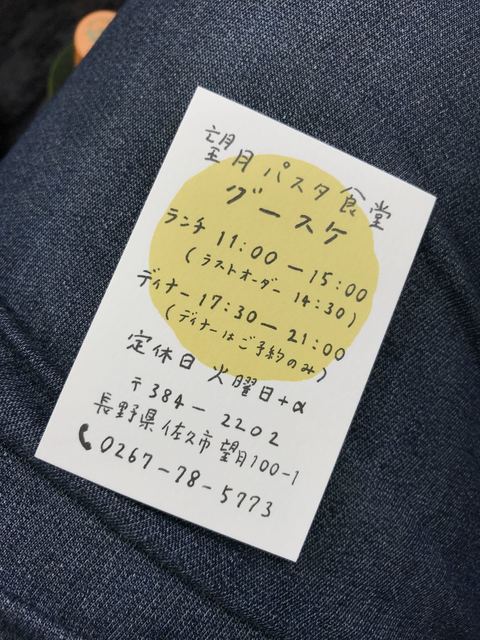 望月パスタ食堂
グースケ
ランチ 11:00−15:00
(ラストオーダー 14:30)
ディナー 17:30−21:00
(ディナーはご予約のみ)
定休日 火曜日+α
〒384−2202
長野県佐久市望月100-1
0267-78-5773